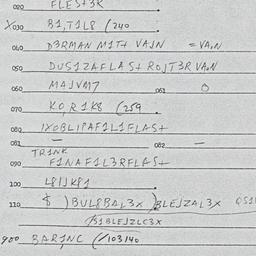 020 FLES+3R
X030 B1,T1L8 (240
040 D3RMAN M1TH VAJN =VA,N
050 DUS1ZAFLAS+ ROJT3R VAN
060 MAJVM7 061 0
070 KO,R1K8 (259
080 1XOBL1PAF1L1FLAS+
081 — 082 —
TR1NK
090 F1NAF1L3RFLAS+
100 L81JK81
110 $ )BUL8BAL3X )BLEJZAL3X
/S1BLEJZLC3X
900 BAR1NC (/103140